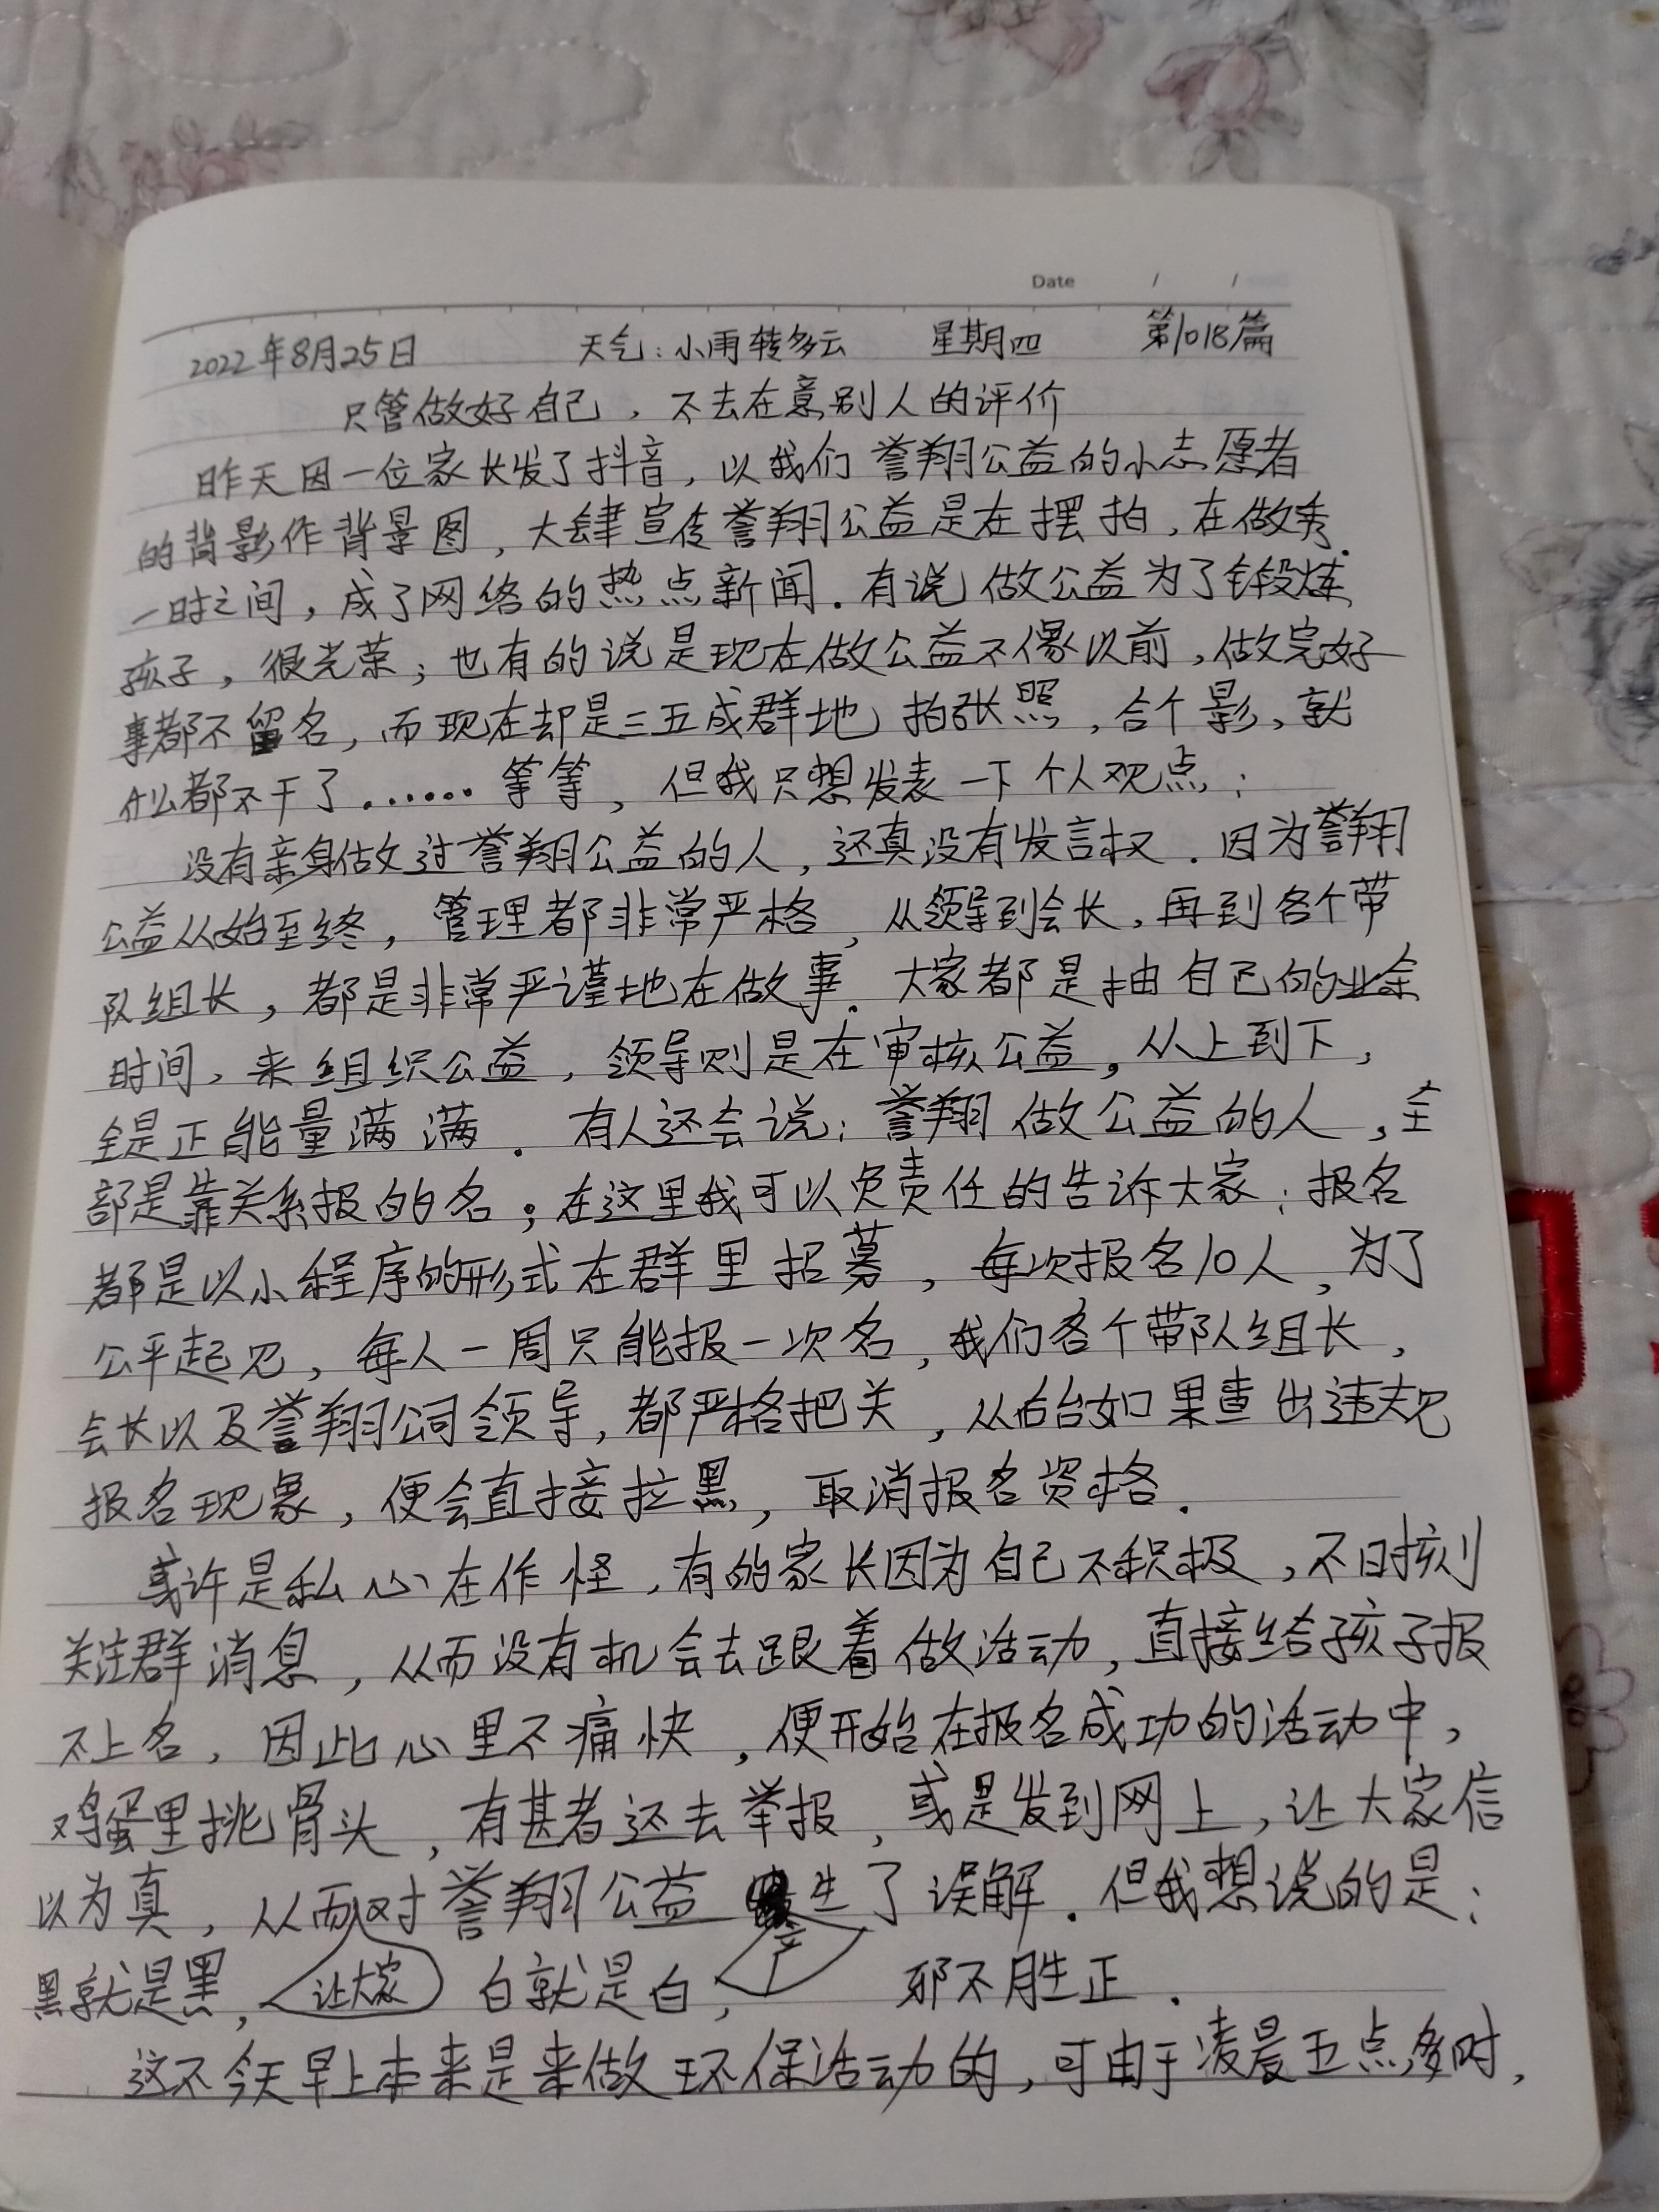 Date / /
2022年8月25日 天气:小雨转多云 星期四 第1018篇
只管做好自己，不去在意别人的评价
昨天因一位家长发了抖音，以我们誉翔公益的小志愿者
的背影作背景图，大肆宣传誉翔公益是在摆拍，在做秀.
一时之间，成了网络的热点新闻.有说做公益为了锻炼
孩子，很光荣；也有的说是现在做公益不像以前，做完好
事都不留名，而现在却是三五成群地拍张照，合个影，就
什么都不干了.……等等，但我只想发表一下个人观点：
没有亲身做过誉翔公益的人，还真没有发言权.因为誉翔
公益从始至终，管理都非常严格，从领导到会长，再到各个带
队组长，都是非常严谨地在做事.大家都是抽自己的业余
时间，来组织公益，领导则是在审核公益。从上到下，
全是正能量满满.有人还会说：誉翔做公益的人，全
部是靠关系报的名；在这里我可以负责任的告诉大家：报名
都是以小程序的形式在群里招募，每次报名10人，为了
公平起见，每人一周只能报一次名，我们各个带队组长，
会长以及誉翔公司领导，都严格把关，从后台如果查出违规
报名现象，便会直接拉黑，取消报名资格.
或许是私心在作怪，有的家长因为自己不积极，不时刻
关注群消息，从而没有机会去跟着做活动，直接给孩子报
不上名，因此心里不痛快，便开始在报名成功的活动中，
鸡蛋里挑骨头，有甚者还去举报，或是发到网上，让大家信
以为真，从而让大家对誉翔公益产生了误解.但我想说的是：
黑就是黑，白就是白，邪不胜正.
这不今天早上本来是来做环保活动的，可由于凌晨五点多时，